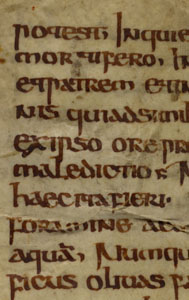 potest Inquie
mortifero In
et patrem et in
nis quiadsimil
ex ipso ore pro
maledictio N
haec ita fieri ·
foramine
aquā Numqu
ficus olivas f